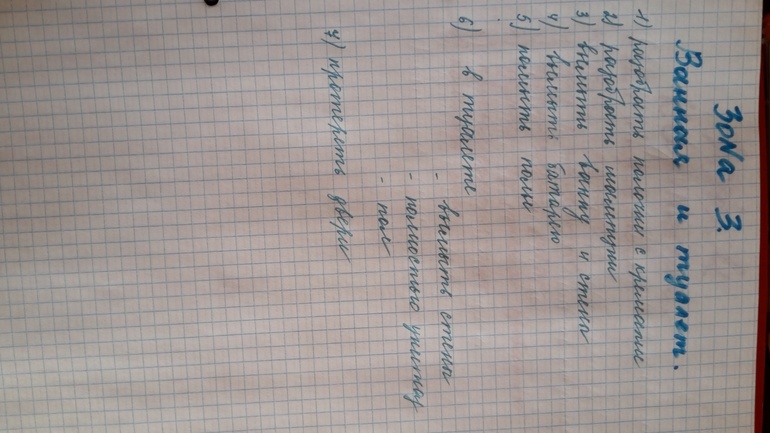 ЗОNА 3.
Ванная и туалет.
1) разобрать полочки с кремами
2) разобрать шампуни
3) вымыть ванну и стены
4) вымыть батарею
5) помыть полы
6) в туалете
- вымыть стены
- полностью унитаз
- пол
7) протереть двери